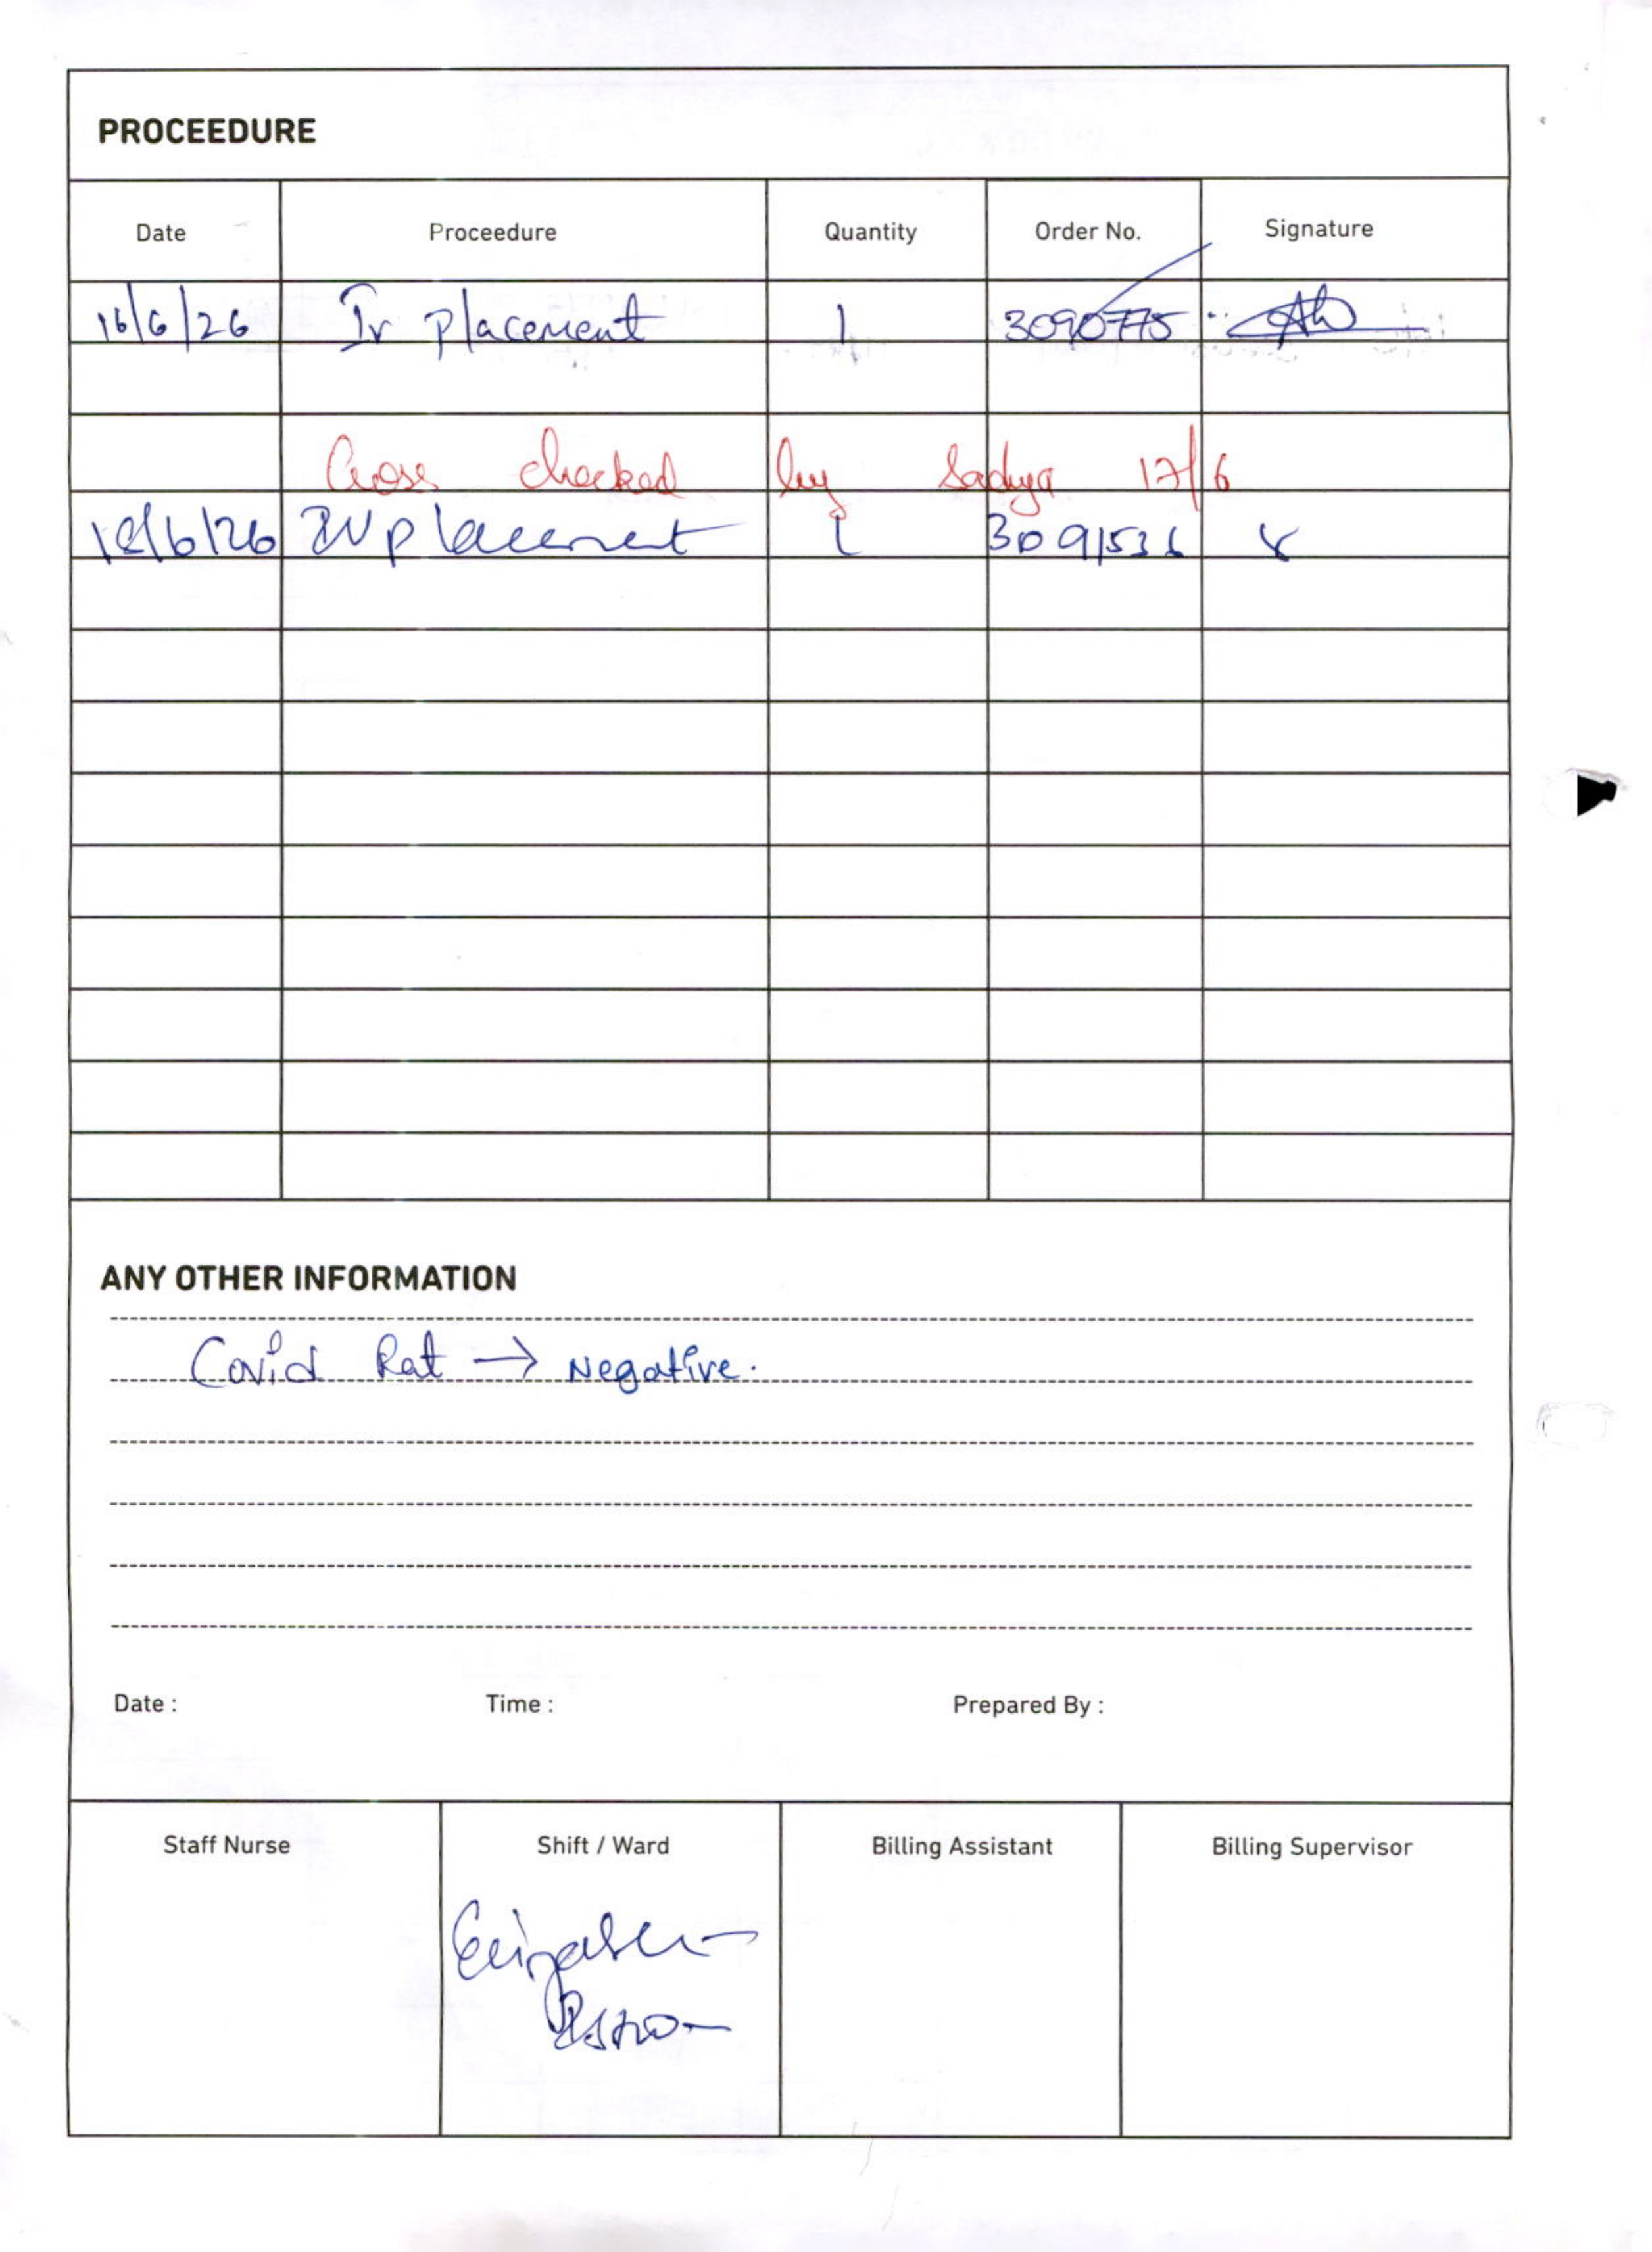 PROCEEDURE
Date Proceedure Quantity Order No. Signature
16/6/26 Iv Placement 1 3090775
Cross checked by Sadya 17/6
18/6/26 IV placement 1 3091536
ANY OTHER INFORMATION
Covid Rat → Negative.
Date : Time : Prepared By :
Staff Nurse Shift / Ward Billing Assistant Billing Supervisor